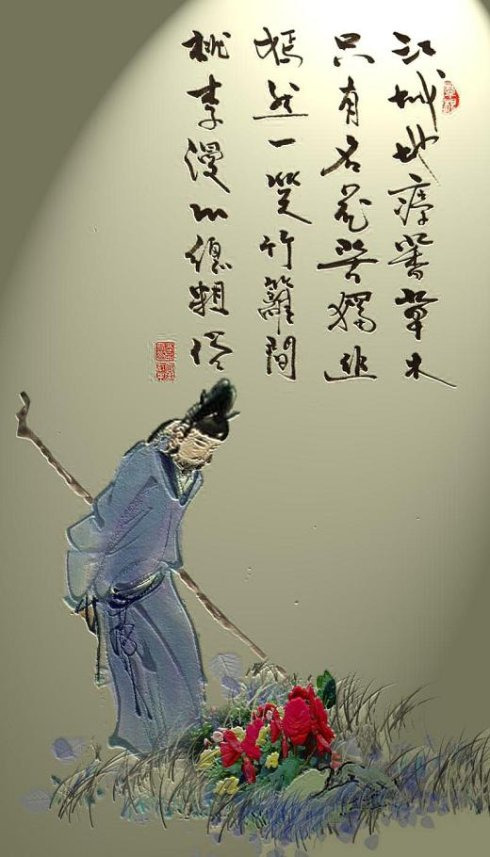 江城地瘴蕃草木
只有名花苦獨幽
嫣然一笑竹籬間
桃李漫山總粗俗